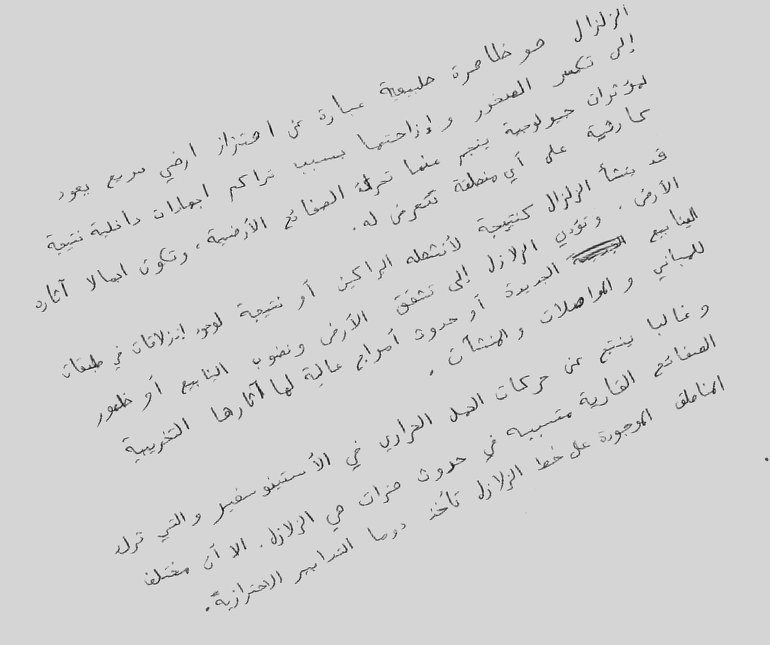 الزلزال هو ظاهرة طبيعية عبارة عن اهتزاز ارضي سريع يعود
إلى تكسر الصخور وإزاحتها بسبب تراكم اجهادات داخلية نتيجة
لمؤثرات جيولوجية ينجم عنها تحرك الصفائح الأرضية، وتكون اجمالا آثاره
كارثية على أي منطقة تتعرض له.
قد ينشأ الزلزال كنتيجة لأنشطة البراكين أو نتيجة لوجود إنزلاقات في طبقات
الأرض. وتؤدي الزلازل إلى تشقق الأرض ونضوب الينابيع أو ظهور
الينابيع الجديدة أو حدوث أمواج عالية لها آثارها التخريبية
للمباني و المواصلات و المنشآت.
و غالبا ينتج عن حركات الحمل الحراري في الأستينوسفير والتي تحرك
الصفائح القارية متسببه في حدوث هزات هي الزلازل. الا أن مختلف
المناطق الموجودة على خط الزلازل تأخذ دوما التدابير الاحترازية.